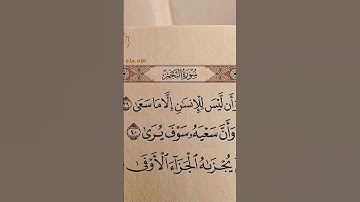 سُورَةُ النَّجْمِ
أَن لَّيْسَ لِلْإِنسَٰنِ إِلَّا مَا سَعَىٰ ٣٩
وَأَنَّ سَعْيَهُۥ سَوْفَ يُرَىٰ ٤٠
يُجْزَىٰهُ الْجَزَآءَ الْأَوْفَىٰ